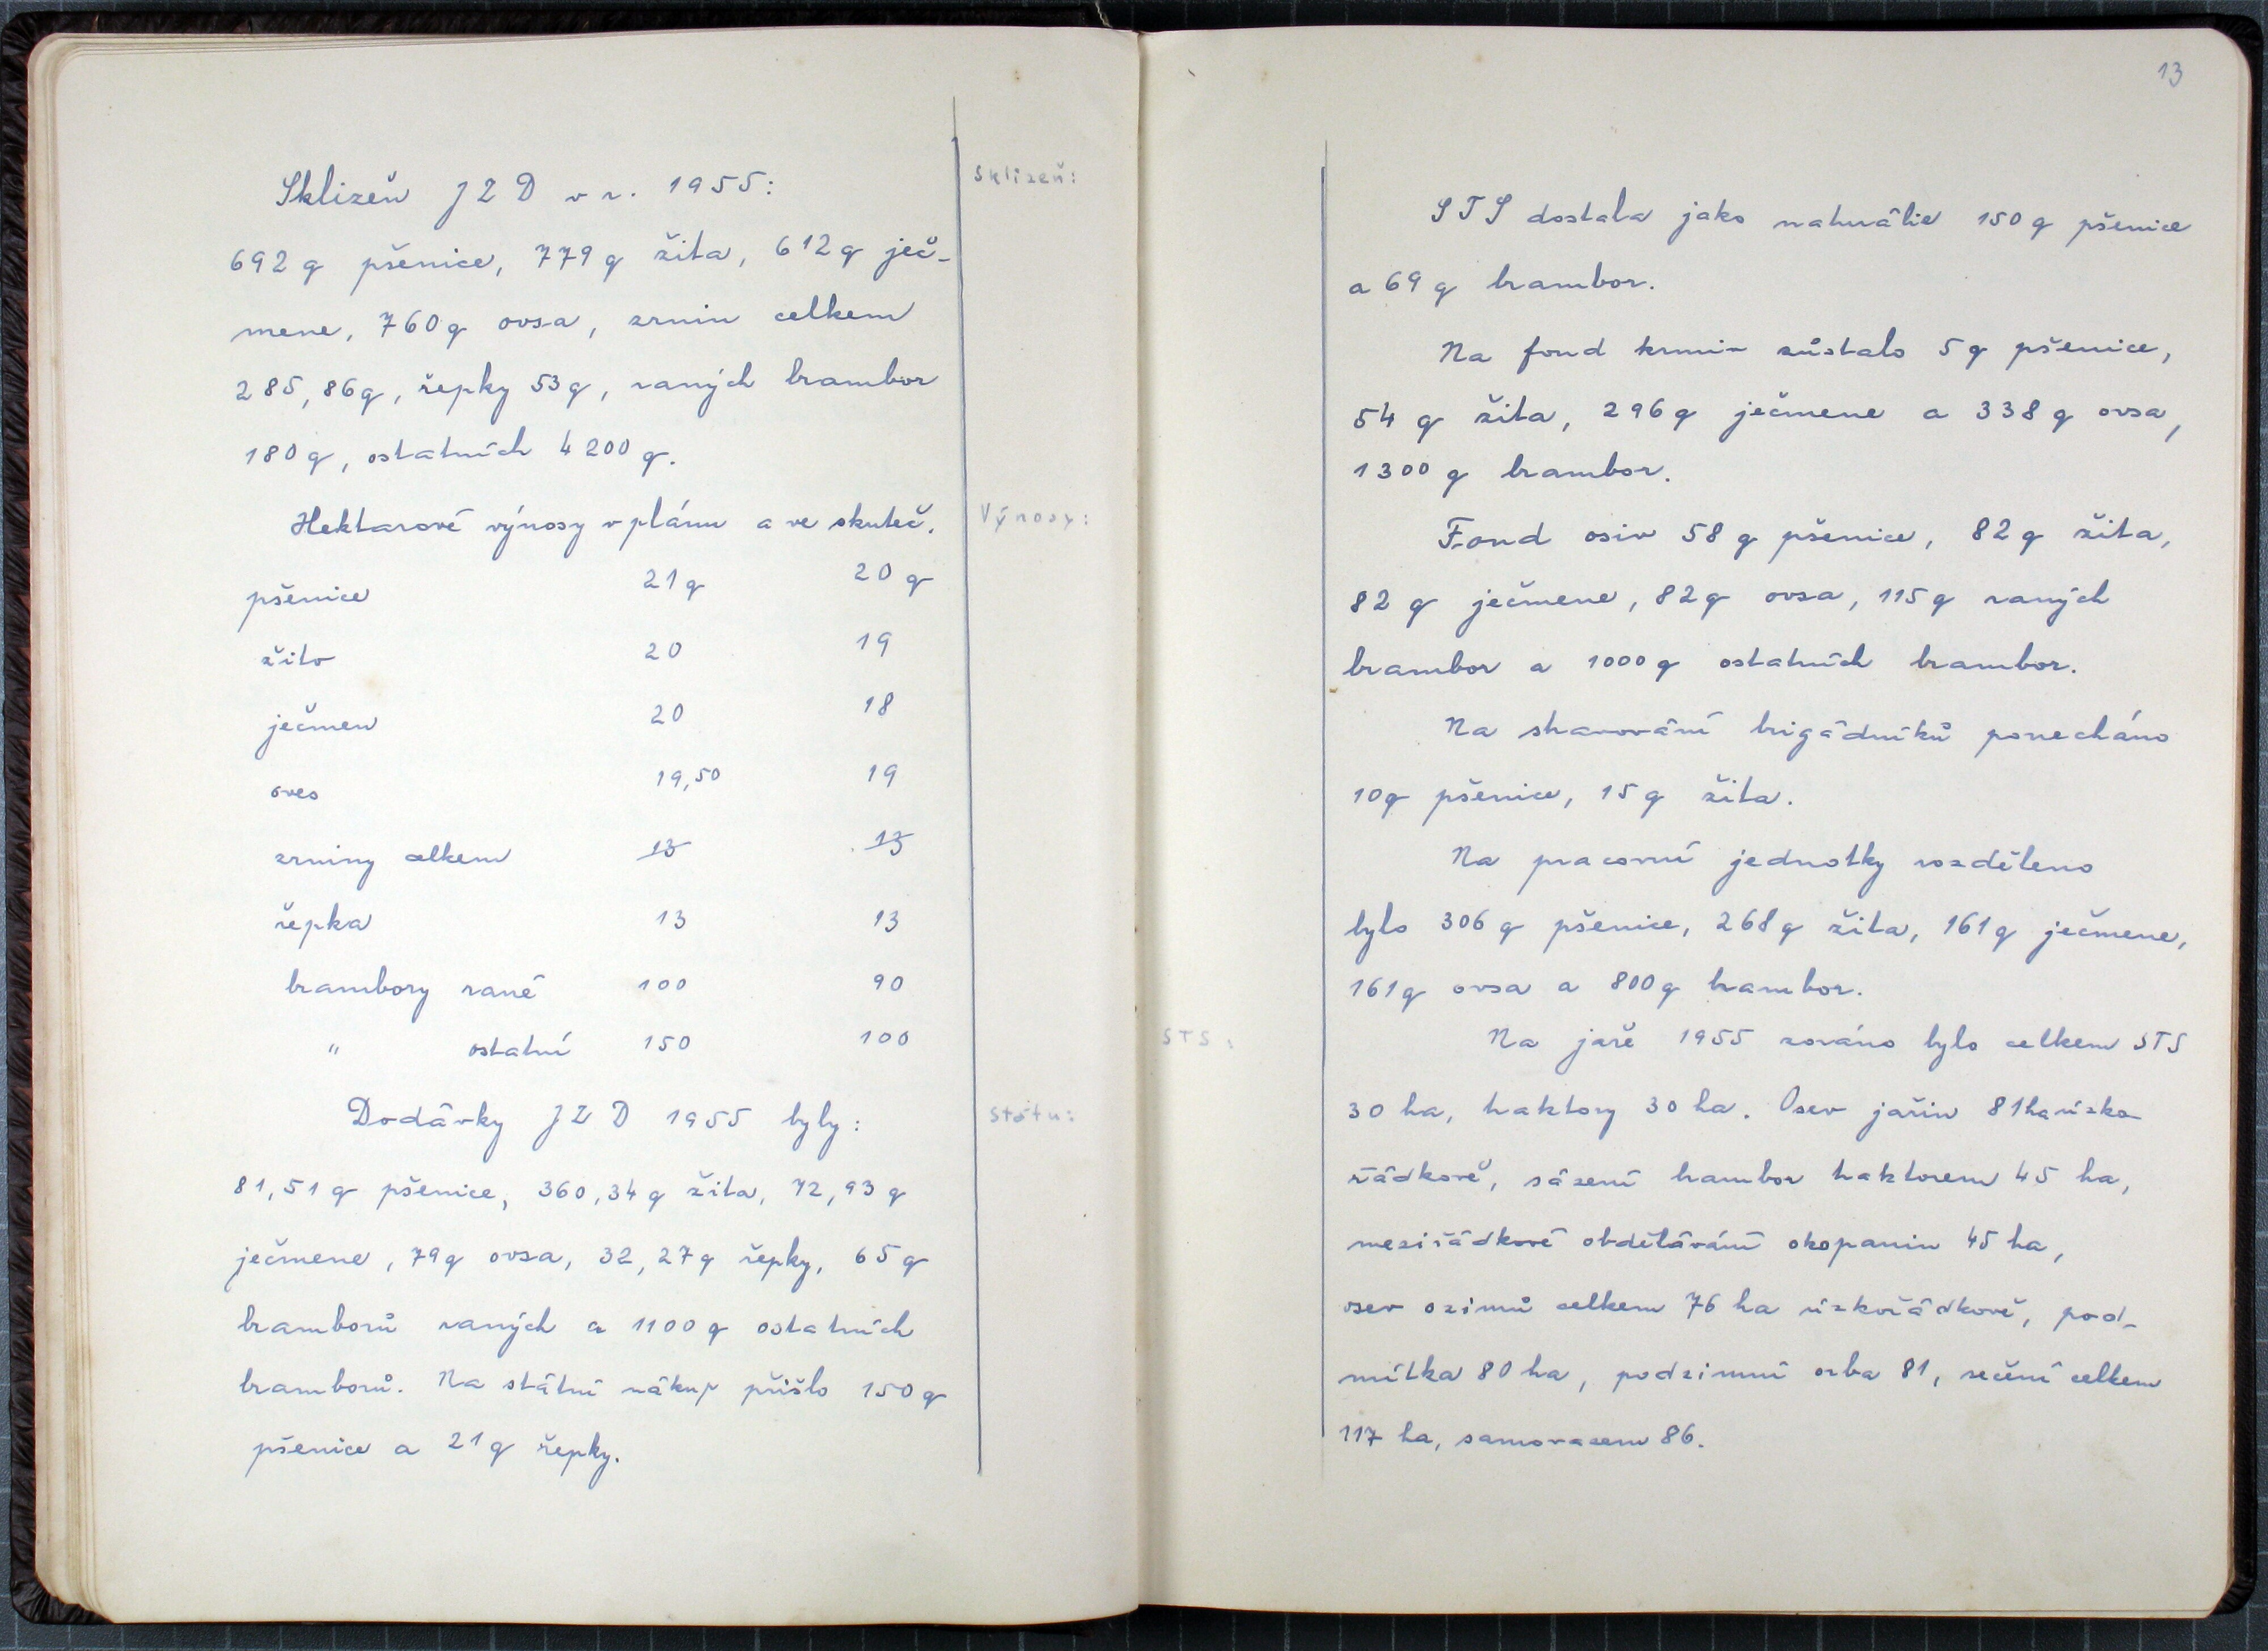 Sklizeň:
Sklizeň JZD v r. 1955:
692 q pšenice, 779 q žita, 612 q ječ-
mene, 760 q ovsa, zrnin celkem
285,86 q, řepky 53 q, raných brambor
180 q, ostatních 4200 q.
Výnosy:
Hektarové výnosy v plánu a ve skuteč.
pšenice 21 q 20 q
žito 20 19
ječmen 20 18
oves 19,50 19
zrniny celkem 13 13
řepka 13 13
brambory rané 100 90
" ostatní 150 100
Státu:
Dodávky JZD 1955 byly:
81,51 q pšenice, 360,34 q žita, 72,93 q
ječmene, 79 q ovsa, 32,27 q řepky, 65 q
bramborů raných a 1100 q ostatních
bramborů. Na státní nákup přišlo 150 q
pšenice a 21 q řepky.
13
STS dostala jako naturálie 150 q pšenice
a 69 q brambor.
Na fond krmiv zůstalo 5 q pšenice,
54 q žita, 296 q ječmene a 338 q ovsa,
1300 q brambor.
Fond osiv 58 q pšenice, 82 q žita,
82 q ječmene, 82 q ovsa, 115 q raných
brambor a 1000 q ostatních brambor.
Na stravování brigádníků ponecháno
10 q pšenice, 15 q žita.
Na pracovní jednotky rozděleno
bylo 306 q pšenice, 268 q žita, 161 q ječmene,
161 q ovsa a 800 q brambor.
STS:
Na jaře 1955 zoráno bylo celkem STS
30 ha, traktory 30 ha. Osev jařin 81 ha úzko
řádkově, sázení brambor traktorem 45 ha,
meziřádkové obdělávání okopanin 45 ha,
osev ozimů celkem 76 ha úzkořádkově, pod-
mítka 80 ha, podzimní orba 81, sečení celkem
117 ha, samovazem 86.